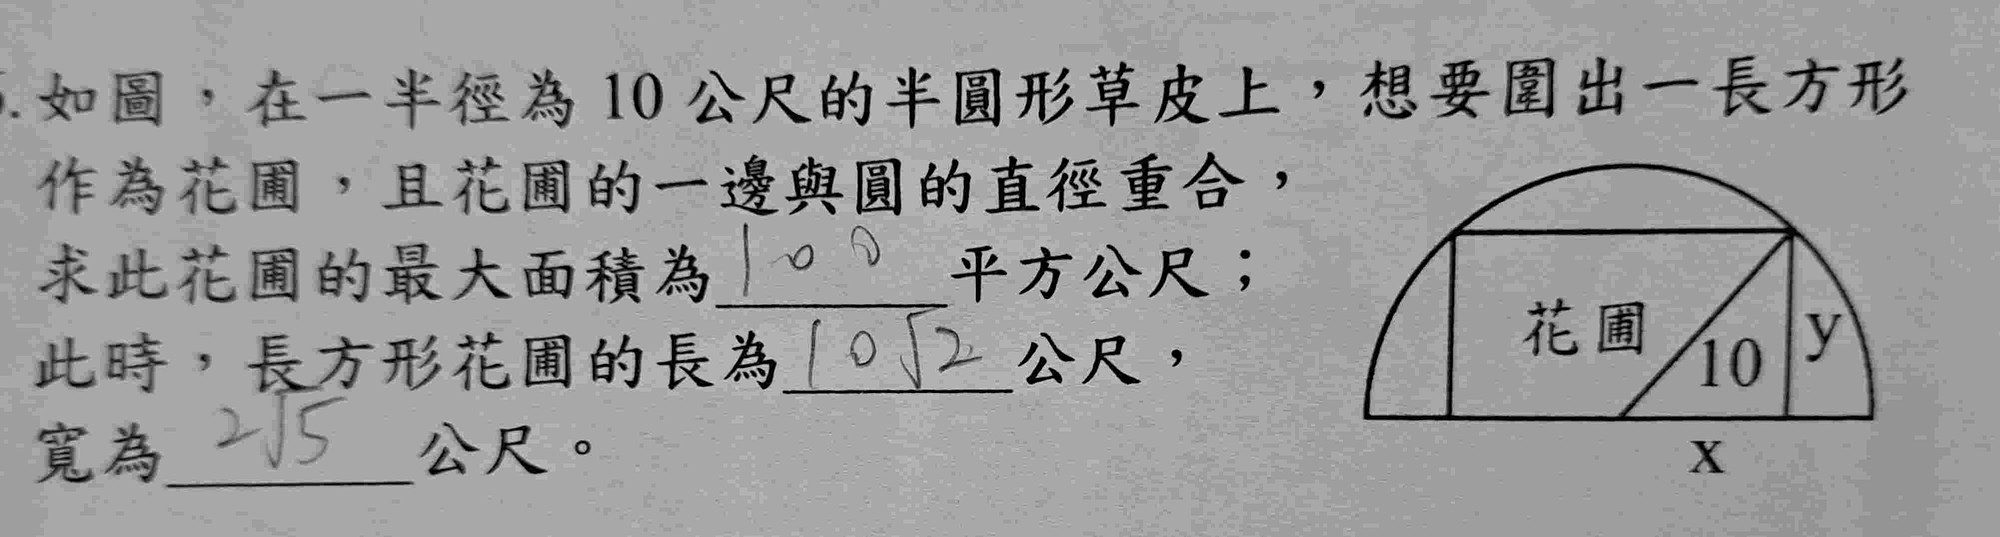 .如圖，在一半徑為 10 公尺的半圓形草皮上，想要圍出一長方形
作為花圃，且花圃的一邊與圓的直徑重合，
求此花圃的最大面積為100平方公尺；
此時，長方形花圃的長為10√2公尺，
寬為2√5公尺。
花圃
10
y
x